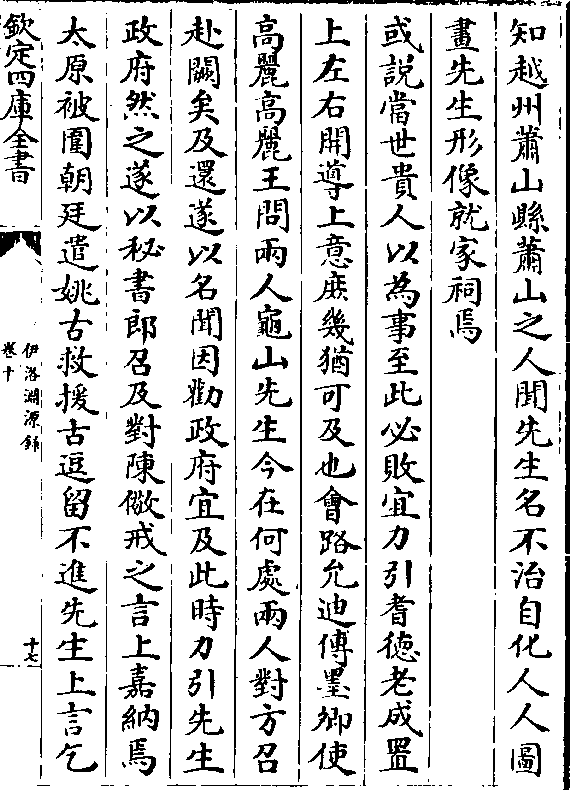 知越州蕭山縣蕭山之人聞先生名不治自化人人圖
畫先生形像就家祠焉
或說當世貴人以為事至此必敗宜力引耆德老成置
上左右開導上意庶幾猶可及也會路允迪傅墨卿使
高麗高麗王問兩人龜山先生今在何處兩人對方召
赴闕矣及還遂以名聞因勸政府宜及此時力引先生
政府然之遂以秘書郎召及對陳儆戒之言上嘉納焉
太原被圍朝廷遣姚古救援古逗留不進先生上言乞
欽定四庫全書
伊洛淵源錄
卷十
十七